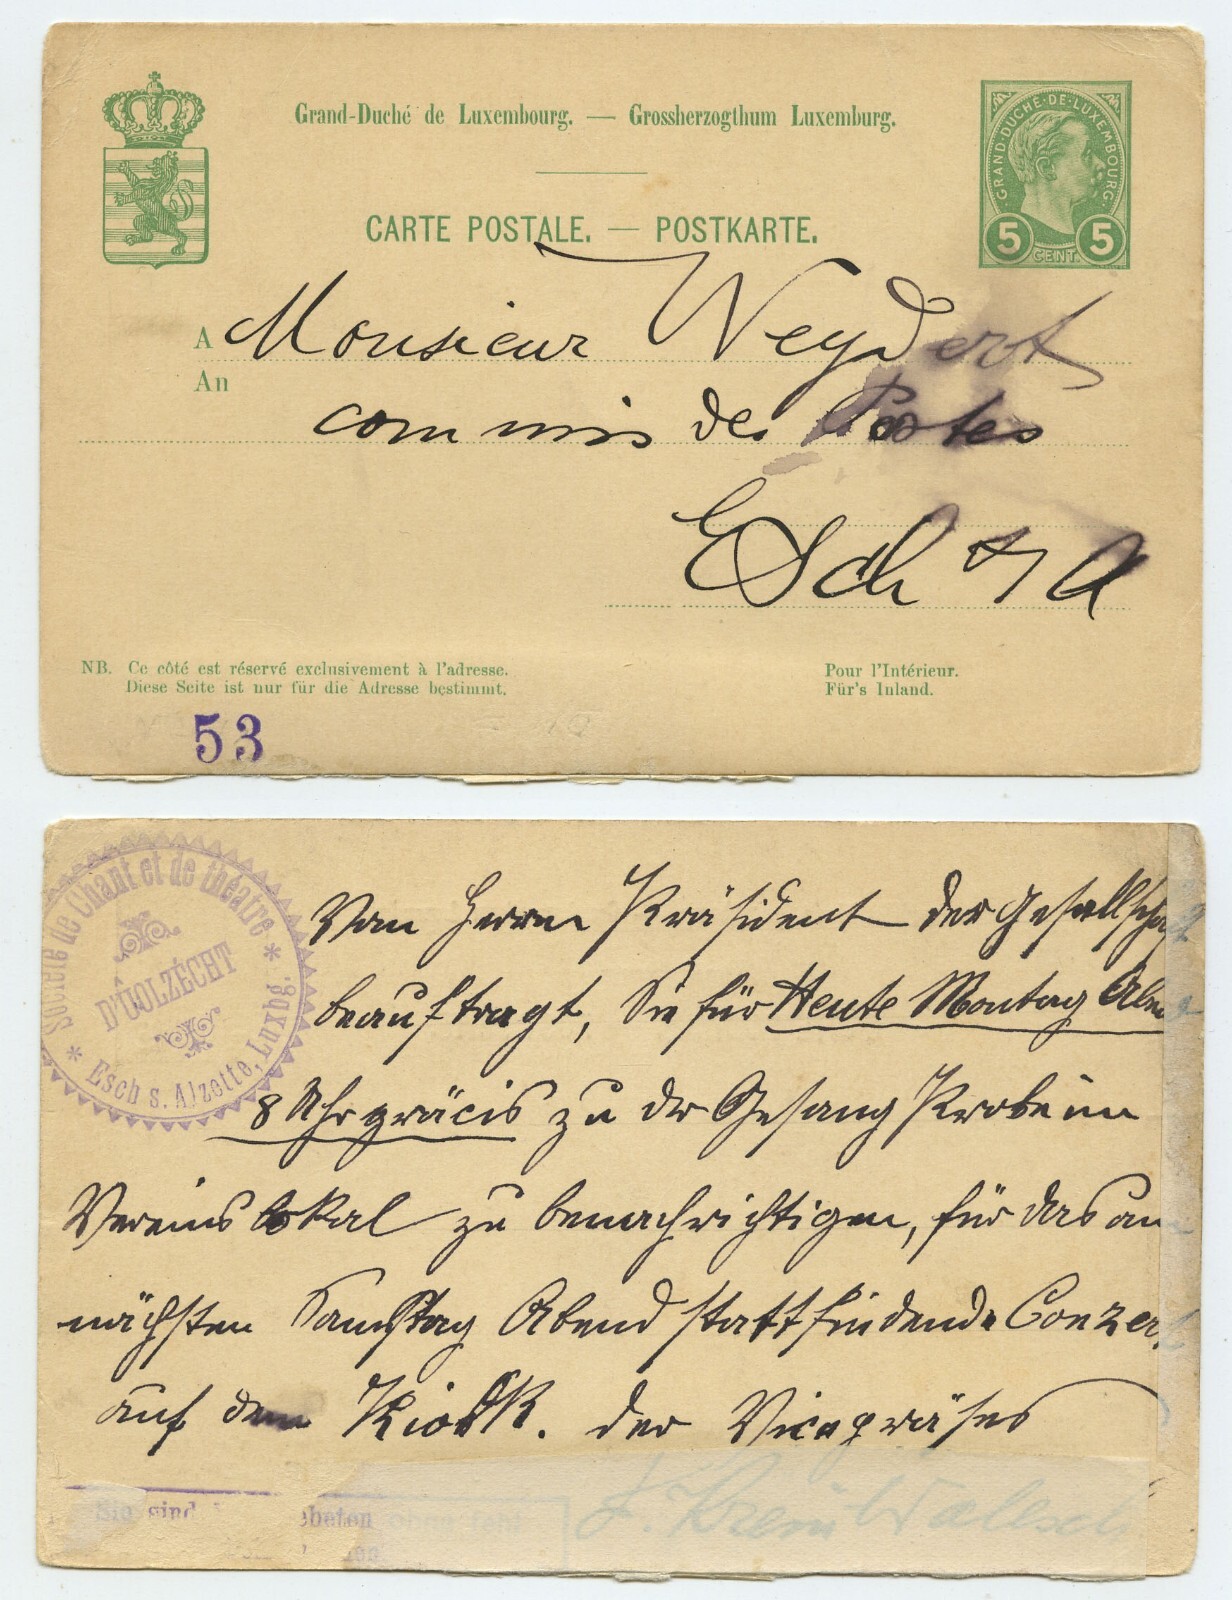 Grand-Duché de Luxembourg. — Grossherzogthum Luxemburg.
GRAND-DUCHÉ-DE-LUXEMBOURG
5 CENT. 5
CARTE POSTALE. — POSTKARTE.
A Monsieur Weydert
An
commis des Postes
Esch s/A
NB. Ce côté est réservé exclusivement à l'adresse.
Diese Seite ist nur für die Adresse bestimmt.
Pour l'Intérieur.
Für's Inland.
53
Société de Chant et de théatre
D'UOLZÉCHT
Esch s. Alzette, Luxbg.
Vom Herrn Präsident der Gesellschaft
beauftragt, Sie für Heute Montag Abend
8 Uhr präcis zu der Gesang Probe im
Vereinslokal zu benachrichtigen, für das am
nächsten Samstag Abend stattfindende Conzert
auf dem Kiosk. der Vicepräses
Sie sind